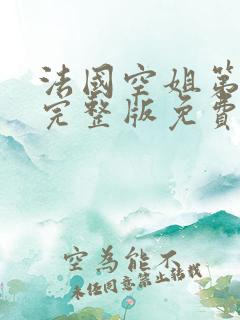 法國空姐第
完整版免費
空為能不
未任同意禁止轉載